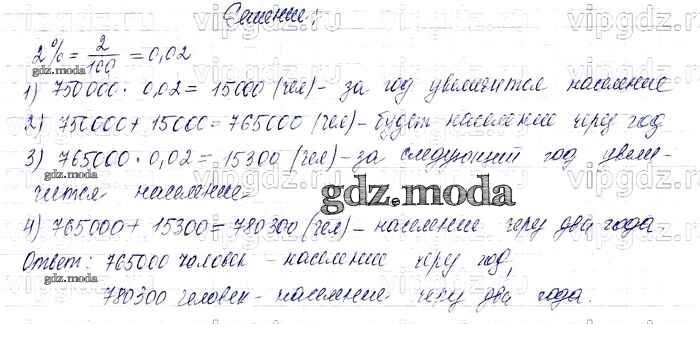 Решение:
2% = 2/100 = 0,02
gdz.moda
1) 750000 · 0,02 = 15000 (чел) - за год увеличится население
2) 750000 + 15000 = 765000 (чел) - будет население через год
3) 765000 · 0,02 = 15300 (чел) - за следующий год увели-
чится население
gdz.moda
4) 765000 + 15300 = 780300 (чел) - население через два года.
Ответ: 765000 человек - население через год,
gdz.moda
780300 человек - население через два года.
vipgdz.ru